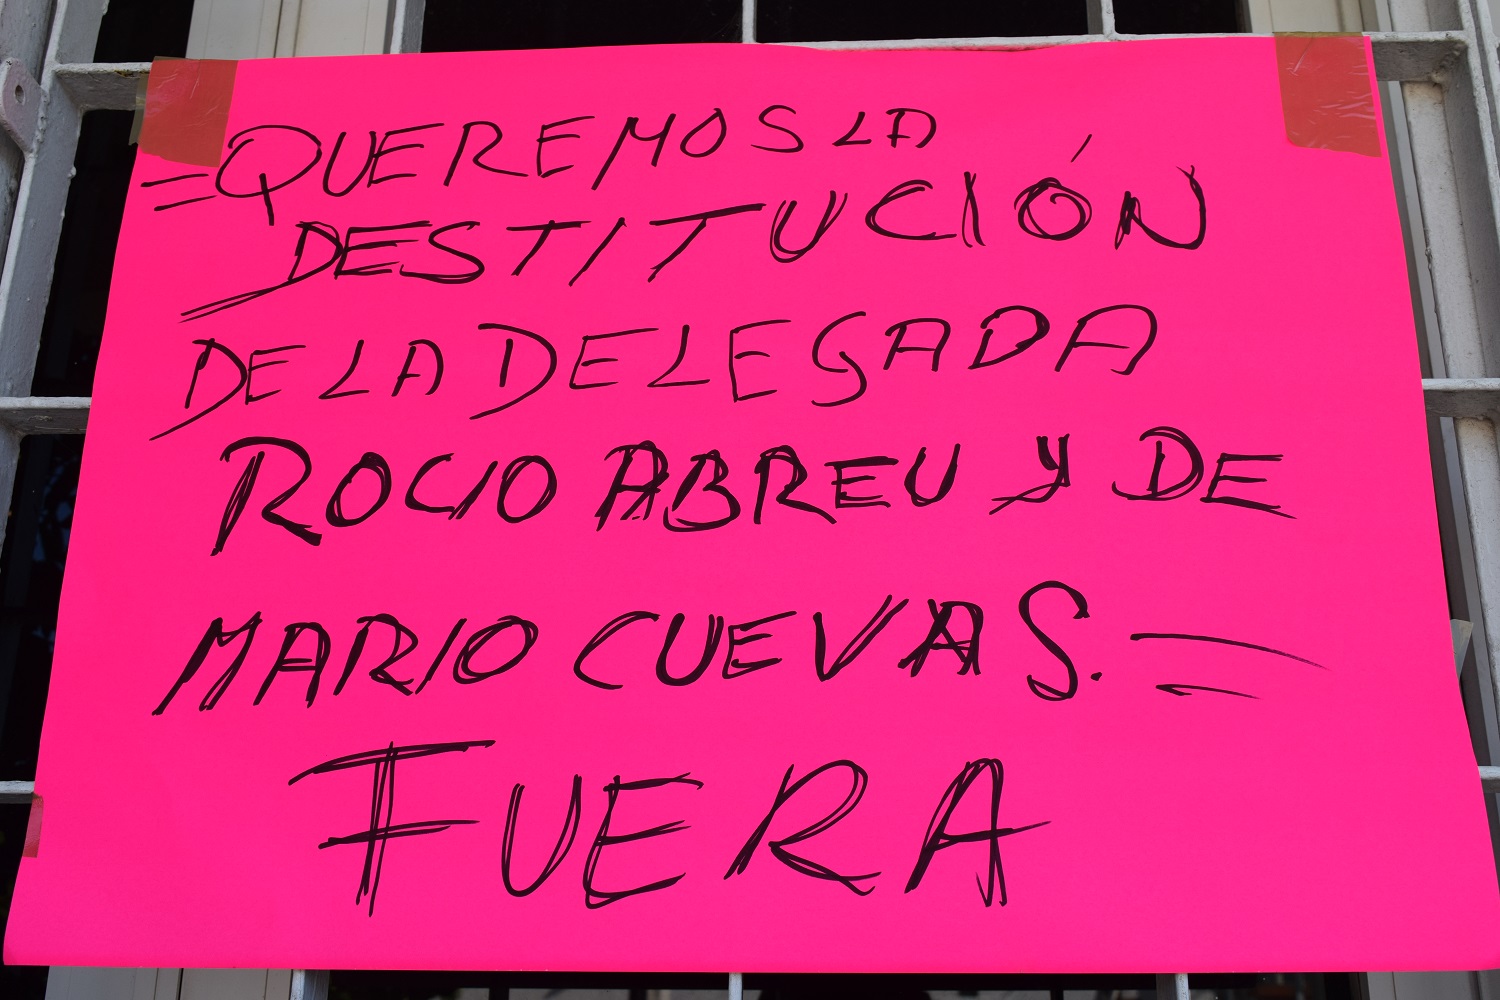 =QUEREMOS LA
DESTITUCIÓN
DE LA DELEGADA
ROCIO ABREU Y DE
MARIO CUEVAS.=
FUERA